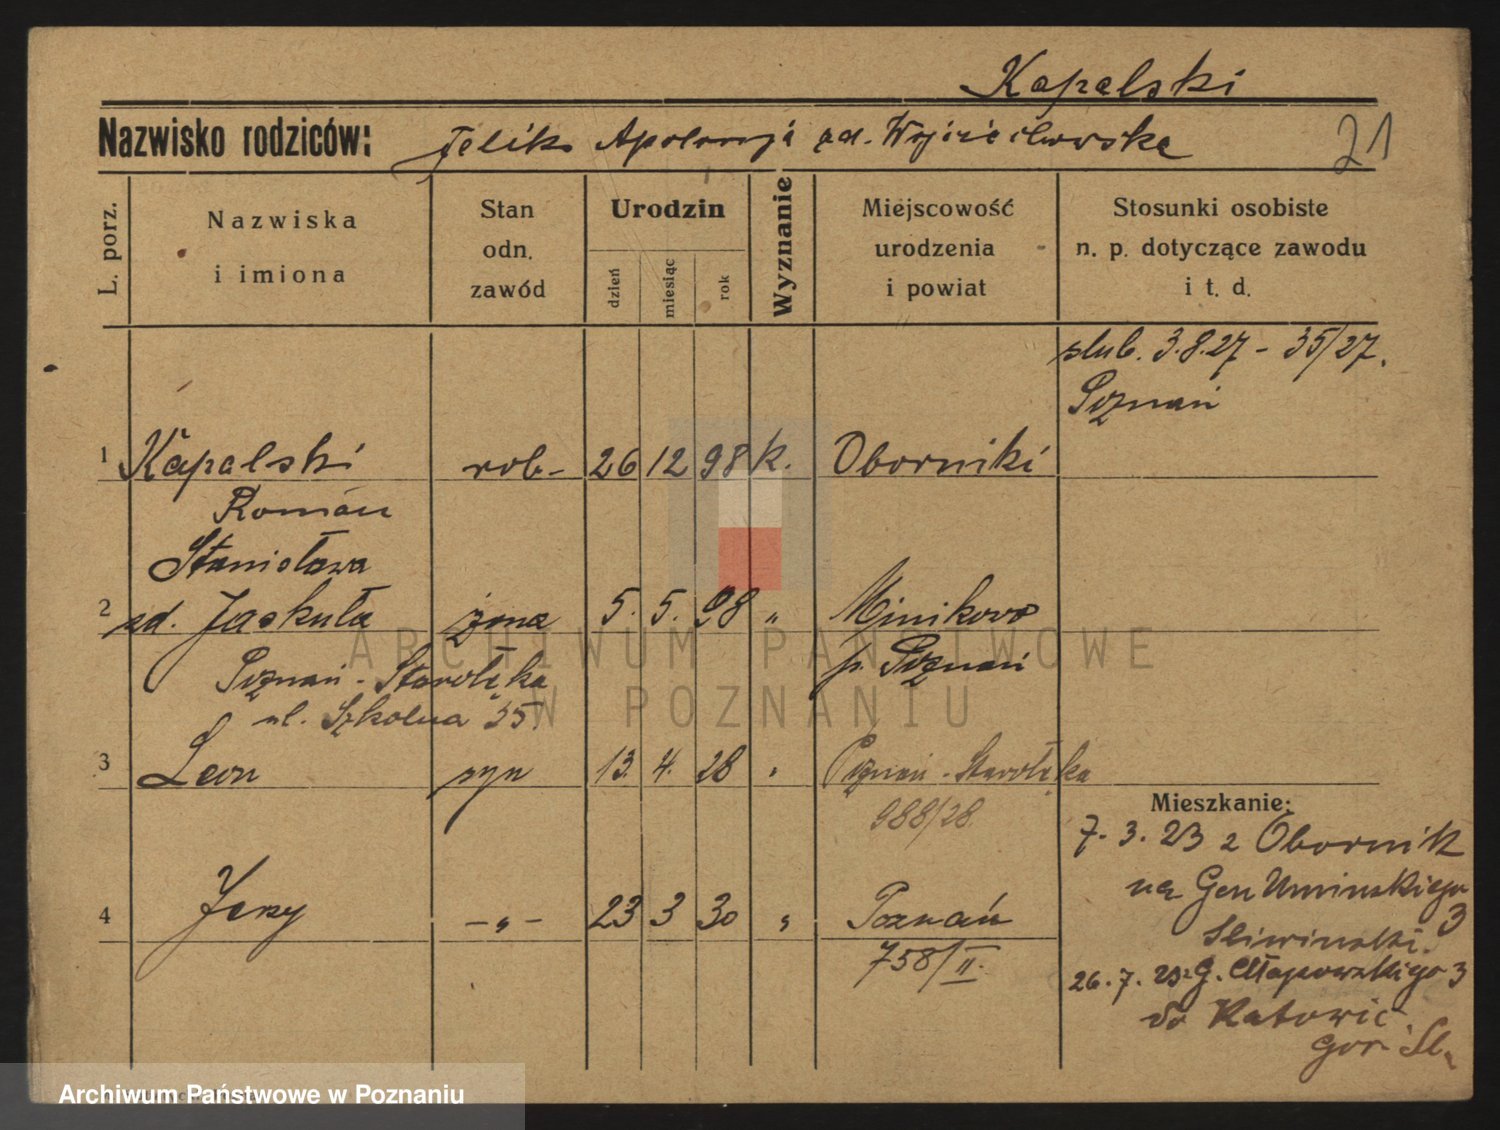 Kapalski
Nazwisko rodziców: Feliks Apolonja zd. Wojciechowska
21
L. porz.
Nazwiska
i imiona
Stan
odn.
zawód
Urodzin
dzień
miesiąc
rok
Wyznanie
Miejscowość
urodzenia
i powiat
Stosunki osobiste
n. p. dotyczące zawodu
i t. d.
slub. 3.8.27 - 35/27.
Poznań
1 Kapalski rob- 26 12 98 k. Oborniki
Roman
Stanisława
2 zd. Jaskuła żona 5. 5. 98 " Minikowo
p. Poznań
Poznań - Starołęka
ul. Szkolna 35.
3 Leon syn 13. 4. 28 " Poznań - Starołęka
988/28.
Mieszkanie:
7. 3. 23 z Obornik
na Gen Umińskiego
3
Sliwinski.
4 Jerzy - " - 23 3 30 " Poznań
758/II.
26. 7. 23 z G. Chłapowskiego 3
do Katowic.
Gór Sl.
ARCHIWUM PAŃSTWOWE
W POZNANIU
Archiwum Państwowe w Poznaniu